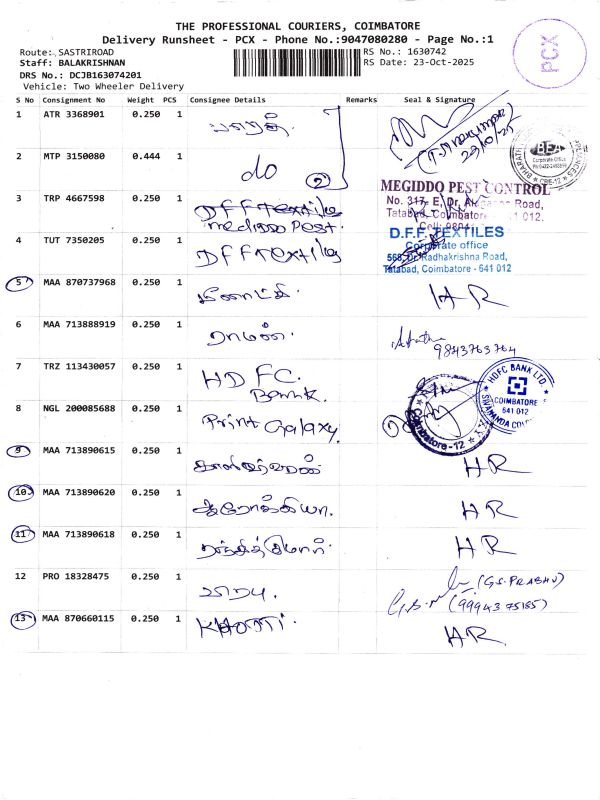 THE PROFESSIONAL COURIERS, COIMBATORE
Delivery Runsheet - PCX - Phone No.:9047080280 - Page No.:1
Route: SASTRIROAD
RS No.: 1630742
Staff: BALAKRISHNAN
RS Date: 23-Oct-2025
DRS No.: DCJB163074201
Vehicle: Two Wheeler Delivery
PCX
S No Consignment No Weight PCS Consignee Details Remarks Seal & Signature
1 ATR 3368901 0.250 1 பாரதி
2 MTP 3150080 0.444 1 do 2
BEA
Corporate Office
CBE-12
3 TRP 4667598 0.250 1 DFF Textile
Medisso Pest.
MEGIDDO PEST CONTROL
No. 317, E, Dr. Road,
Tatabad, Coimbatore - 641 012.
4 TUT 7350205 0.250 1 DFF Textile
D.F.F. TEXTILES
Corporate office
568, Dr. Radhakrishna Road,
Tatabad, Coimbatore - 641 012
5 MAA 870737968 0.250 1 மீனாட்சி HR
6 MAA 713888919 0.250 1 ராமன்.
9843763764
7 TRZ 113430057 0.250 1 HDFC.
Bank.
HDFC BANK LTD.
COIMBATORE
641 012
8 NGL 200085688 0.250 1 Print Galaxy.
Coimbatore-12
9 MAA 713890615 0.250 1 HR
10 MAA 713890620 0.250 1 ஆரோக்கியா. HR
11 MAA 713890618 0.250 1 ரஞ்சித்குமார். HR
12 PRO 18328475 0.250 1 பிரபு.
(G.S. PRABHU)
(9994375185)
13 MAA 870660115 0.250 1 HR